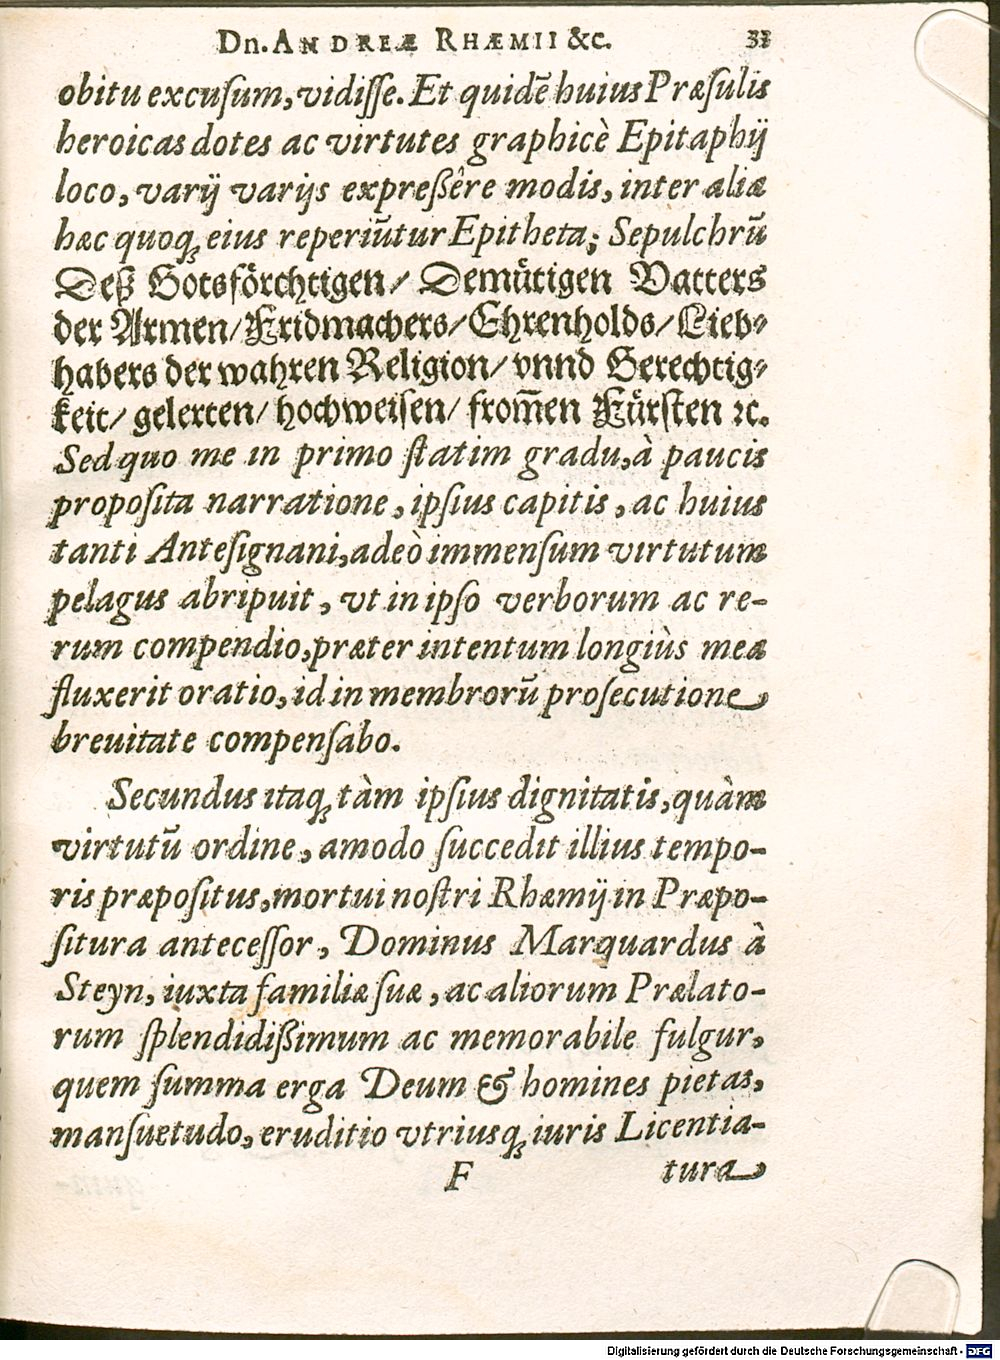 Dn. ANDREÆ RHÆMII &c. 33
obitu excuſum, vidiſſe. Et quidē huius Præſulis
heroicas dotes ac virtutes graphicè Epitaphij
loco, varij varijs expreßêre modis, inter aliæ
hæc quoq; eius reperiūtur Epitheta; Sepulchrū
Deß Gotsförchtigen/ Demütigen Vatters
der Armen/ Fridmachers/ Ehrenholds/ Lieb⸗
habers der wahren Religion/ vnnd Gerechtig⸗
keit/ gelerten/ hochweiſen/ from̄en Fürſten ꝛc.
Sed quo me in primo ſtatim gradu, à paucis
propoſita narratione, ipſius capitis, ac huius
tanti Anteſignani, adeò immenſum virtutum
pelagus abripuit, vt in ipſo verborum ac re-
rum compendio, præter intentum longiùs mea
fluxerit oratio, id in membrorū proſecutione
breuitate compenſabo.
Secundus itaq; tàm ipſius dignitatis, quàm
virtutū ordine, amodo ſuccedit illius tempo-
ris præpoſitus, mortui noſtri Rhæmij in Præpo-
ſitura anteceſſor, Dominus Marquardus à
Steyn, iuxta familiæ ſuæ, ac aliorum Prælato-
rum ſplendidißimum ac memorabile fulgur,
quem ſumma erga Deum & homines pietas,
manſuetudo, eruditio vtriusq; iuris Licentia-
F tura
Digitalisierung gefördert durch die Deutsche Forschungsgemeinschaft - DFG